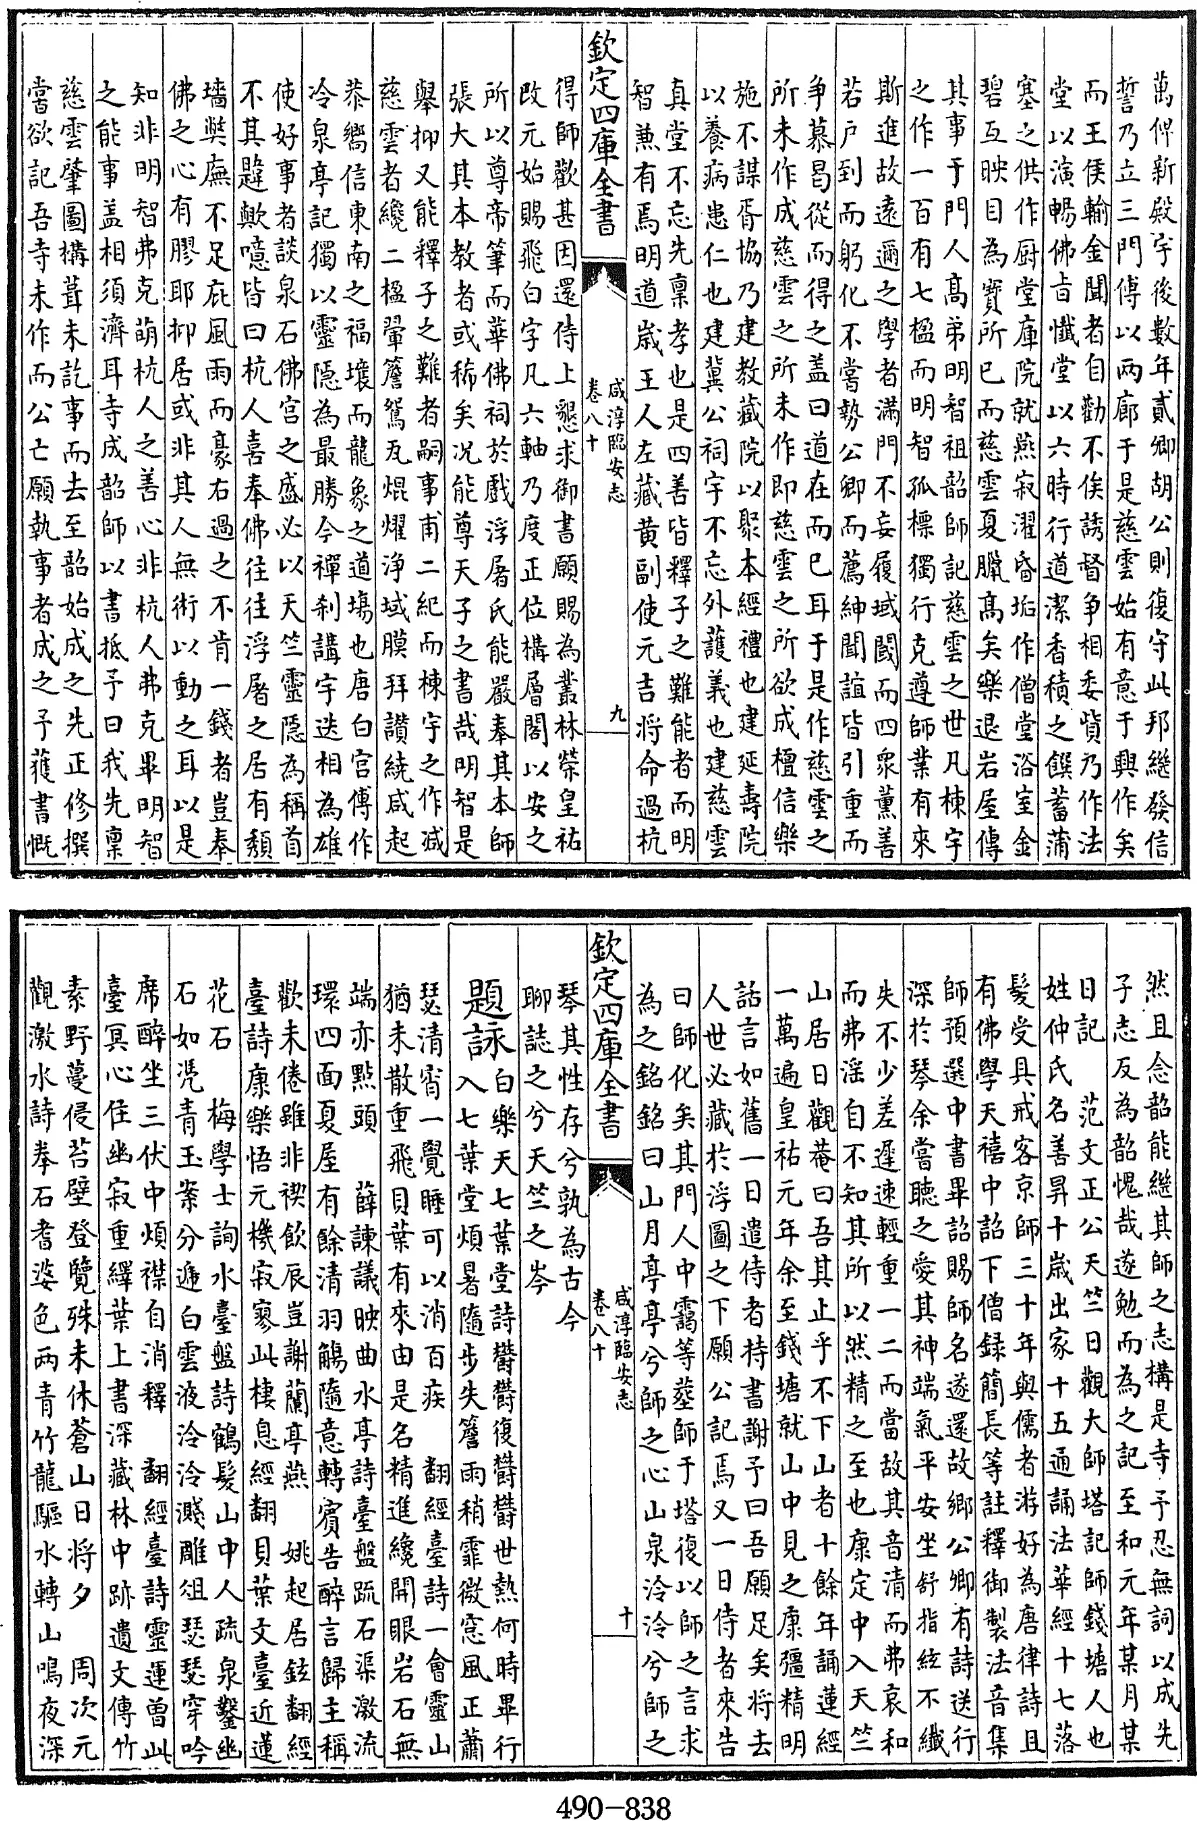 萬俾新殿宇後數年貳卿胡公則復守此邦繼發信
誓乃立三門傅以兩廊于是慈雲始有意于興作矣
而王侯輸金聞者自勸不俟誘督争相委貲乃作法
堂以演暢佛㫖懺堂以六時行道潔香積之饌蓄蒲
塞之供作厨堂庫院就燕寂濯昏垢作僧堂浴室金
碧互映目為寳所已而慈雲夏臘髙矣樂退岩屋傳
其事于門人髙弟明智祖韶師記慈雲之世凡棟宇
之作一百有七楹而明智孤標獨行克遵師業有來
斯進故逺邇之學者滿門不妄履域閫而四衆薫善
若戸到而躬化不嘗勢公卿而薦紳聞誼皆引重而
争慕曷從而得之盖曰道在而已耳于是作慈雲之
所未作成慈雲之所未作即慈雲之所欲成檀信樂
施不謀胥協乃建教藏院以聚本經禮也建延壽院
以養病患仁也建冀公祠宇不忘外護義也建慈雲
真堂不忘先禀孝也是四善皆釋子之難能者而明
智兼有焉明道嵗王人左藏黄副使元吉将命過杭
欽定四庫全書
咸淳臨安志
卷八十
九
得師歡甚因還侍上懇求御書願賜為叢林榮皇祐
改元始賜飛白字凡六軸乃度正位構層閣以安之
所以尊帝筆而華佛祠於戲浮屠氏能嚴奉其本師
張大其本教者或稀矣况能尊天子之書哉明智是
舉抑又能釋子之難者嗣事甫二紀而棟宇之作减
慈雲者纔二楹翬簷鴛瓦焜燿浄域膜拜讃繞咸起
恭嚮信東南之福壤而龍象之道塲也唐白宫傅作
冷泉亭記獨以靈隠為最勝今禪刹講宇迭相為雄
使好事者談泉石佛宫之盛必以天竺靈隠為稱首
不其韙歟噫皆曰杭人喜奉佛往往浮屠之居有頽
墻獘廡不足庇風雨而豪右過之不肯一錢者豈奉
佛之心有膠耶抑居或非其人無術以動之耳以是
知非明智弗克萌杭人之善心非杭人弗克畢明智
之能事盖相須濟耳寺成韶師以書抵予曰我先禀
慈雲肇圖構葺未訖事而去至韶始成之先正修撰
嘗欲記吾寺未作而公亡願執事者成之予蒦書慨
然且念韶能繼其師之志構是寺予忍無詞以成先
子志反為韶愧哉遂勉而為之記至和元年某月某
日記　范文正公天竺日觀大師塔記師錢塘人也
姓仲氏名善昇十嵗出家十五通誦法華經十七落
髪受具戒客京師三十年與儒者游好為唐律詩且
有佛學天禧中詔下僧録簡長等註釋御製法音集
師預選中書畢詔賜師名遂還故鄉公卿有詩送行
深於琴余嘗聴之愛其神端氣平安坐舒指絃不纎
失不少差遲速輕重一二而當故其音清而弗哀和
而弗淫自不知其所以然精之至也康定中入天竺
山居日觀菴曰吾其止乎不下山者十餘年誦蓮經
一萬遍皇祐元年余至錢塘就山中見之康彊精明
話言如舊一日遣侍者持書謝予曰吾願足矣将去
人世必藏於浮圖之下願公記焉又一日侍者來告
曰師化矣其門人中靄等塟師于塔復以師之言求
為之銘銘曰山月亭亭兮師之心山泉泠泠兮師之
欽定四庫全書
咸淳臨安志
卷八十
十
琴其性存兮孰為古今
聊誌之兮天竺之岑
題詠白樂天七葉堂詩欝欝復欝欝世熱何時畢行
入七葉堂煩暑隨步失簷雨稍霏微窓風正蕭
瑟清宵一覺睡可以消百疾　翻經臺詩一㑹靈山
猶未散重飛貝葉有來由是名精進纔開眼岩石無
端亦點頭　薛諫議映曲水亭詩臺盤疏石渠激流
環四面夏屋有餘清羽觴隨意轉賓告醉言歸主稱
歡未倦雖非禊飲辰豈謝蘭亭燕　姚起居鉉翻經
臺詩康樂悟元機寂寥此棲息經翻貝葉文臺近蓮
花石　梅學士詢水臺盤詩鶴髪山中人疏泉鑿幽
石如凴青玉案分遞白雲液泠泠濺雕俎瑟瑟穿吟
席醉坐三伏中煩襟自消釋　翻經臺詩靈運曽此
臺冥心住幽寂重繹葉上書深藏林中跡遺文傳竹
素野蔓侵苔壁登覽殊未休蒼山日将夕　周次元
觀激水詩拳石耆婆色兩青竹龍驅水轉山鳴夜深
490-838